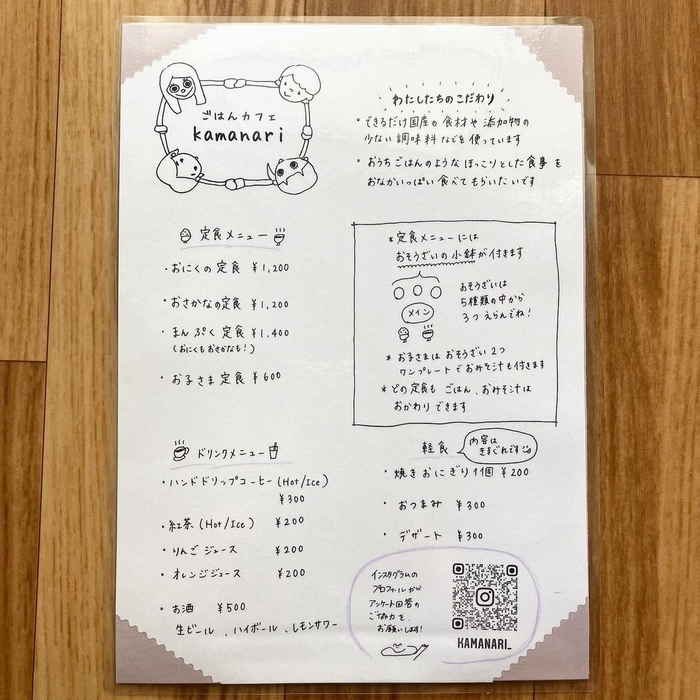 ごはんカフェ
kamanari
わたしたちのこだわり
・できるだけ国産の食材や添加物の
少ない調味料などを使っています
・おうちごはんのようなほっこりとした食事を
おなかいっぱい食べてもらいたいです
定食メニュー
・おにくの定食 ¥1,200
・おさかなの定食 ¥1,200
・まんぷく定食 ¥1,400
(おにくもおさかなも!)
・お子さま定食 ¥600
*定食メニューには
おそうざいの小鉢が付きます
メイン
おそうざいは
5種類の中から
3つえらんでね!
*お子さまはおそうざい2つ
ワンプレートでおみそ汁も付きます
*どの定食もごはん、おみそ汁は
おかわりできます
ドリンクメニュー
・ハンドドリップコーヒー(Hot/Ice)
¥300
・紅茶(Hot/Ice) ¥200
・りんごジュース ¥200
・オレンジジュース ¥200
・お酒 ¥500
生ビール、ハイボール、レモンサワー
軽食
内容は
きまぐれです
・焼きおにぎり1個 ¥200
・おつまみ ¥300
・デザート ¥300
インスタグラムの
プロフィールから
アンケート回答の
ご協力を、
お願いします!
KAMANARI_